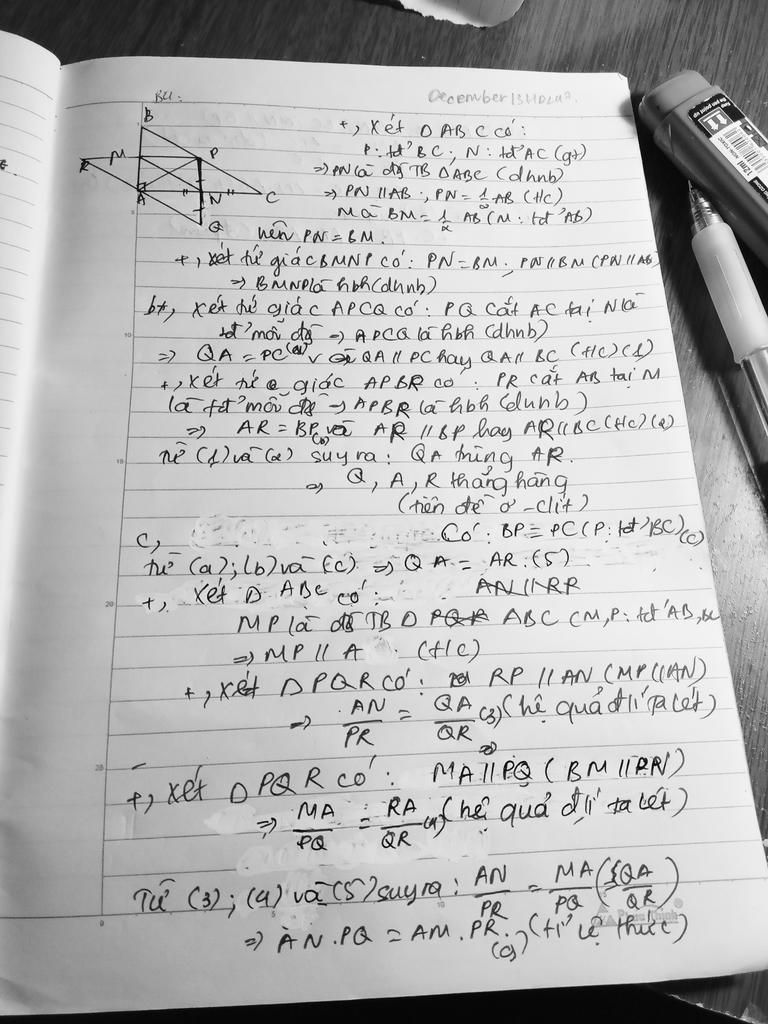 B4:
December 13
+, Xét Δ ABC có:
P: tđ' BC; N: tđ' AC (gt)
⇒ PN là đg TB ΔABC (dhnb)
⇒ PN // AB, PN = 1/2 AB (t/c)
Mà BM = 1/2 AB (M: tđ' AB)
nên PN = BM.
+, Xét tứ giác BMNP có: PN = BM; PN // BM (PN // AB)
⇒ BMNP là hbh (dhnb)
b, Xét tứ giác APCQ có: PQ cắt AC tại N là
tđ' mỗi đg → APCQ là hbh (dhnb)
⇒ QA = PC (a) và QA // PC hay QA // BC (t/c) (1)
+, Xét tứ giác APBR có: PR cắt AB tại M
là tđ' mỗi đg → APBR là hbh (dhnb)
⇒ AR = BP (b) và AR // BP hay AR // BC (t/c) (2)
Từ (1) và (2) suy ra: QA trùng AR.
⇒ Q, A, R thẳng hàng
(tiên đề ơ-clit)
C, Có: BP = PC (P: tđ' BC) (c)
Từ (a); (b) và (c) ⇒ QA = AR (5)
+, Xét Δ ABC có:
MP là đg TB Δ ABC (M, P: tđ' AB, BC
⇒ MP // A (t/c)
+, Xét Δ PQR có: RP // AN (MP // AN)
⇒ AN/PR = QA/QR (3) (hệ quả đ.lí Ta lét)
+, Xét Δ PQR có: MA // PQ (BM // PN)
⇒ MA/PQ = RA/QR (4) (hệ quả đ.lí ta lét)
Từ (3); (4) và (5) suy ra: AN/PR = MA/PQ (= QA/QR)
⇒ AN.PQ = AM.PR. (tỉ lệ thức)
B
R
M
P
A
N
C
Q
12ml